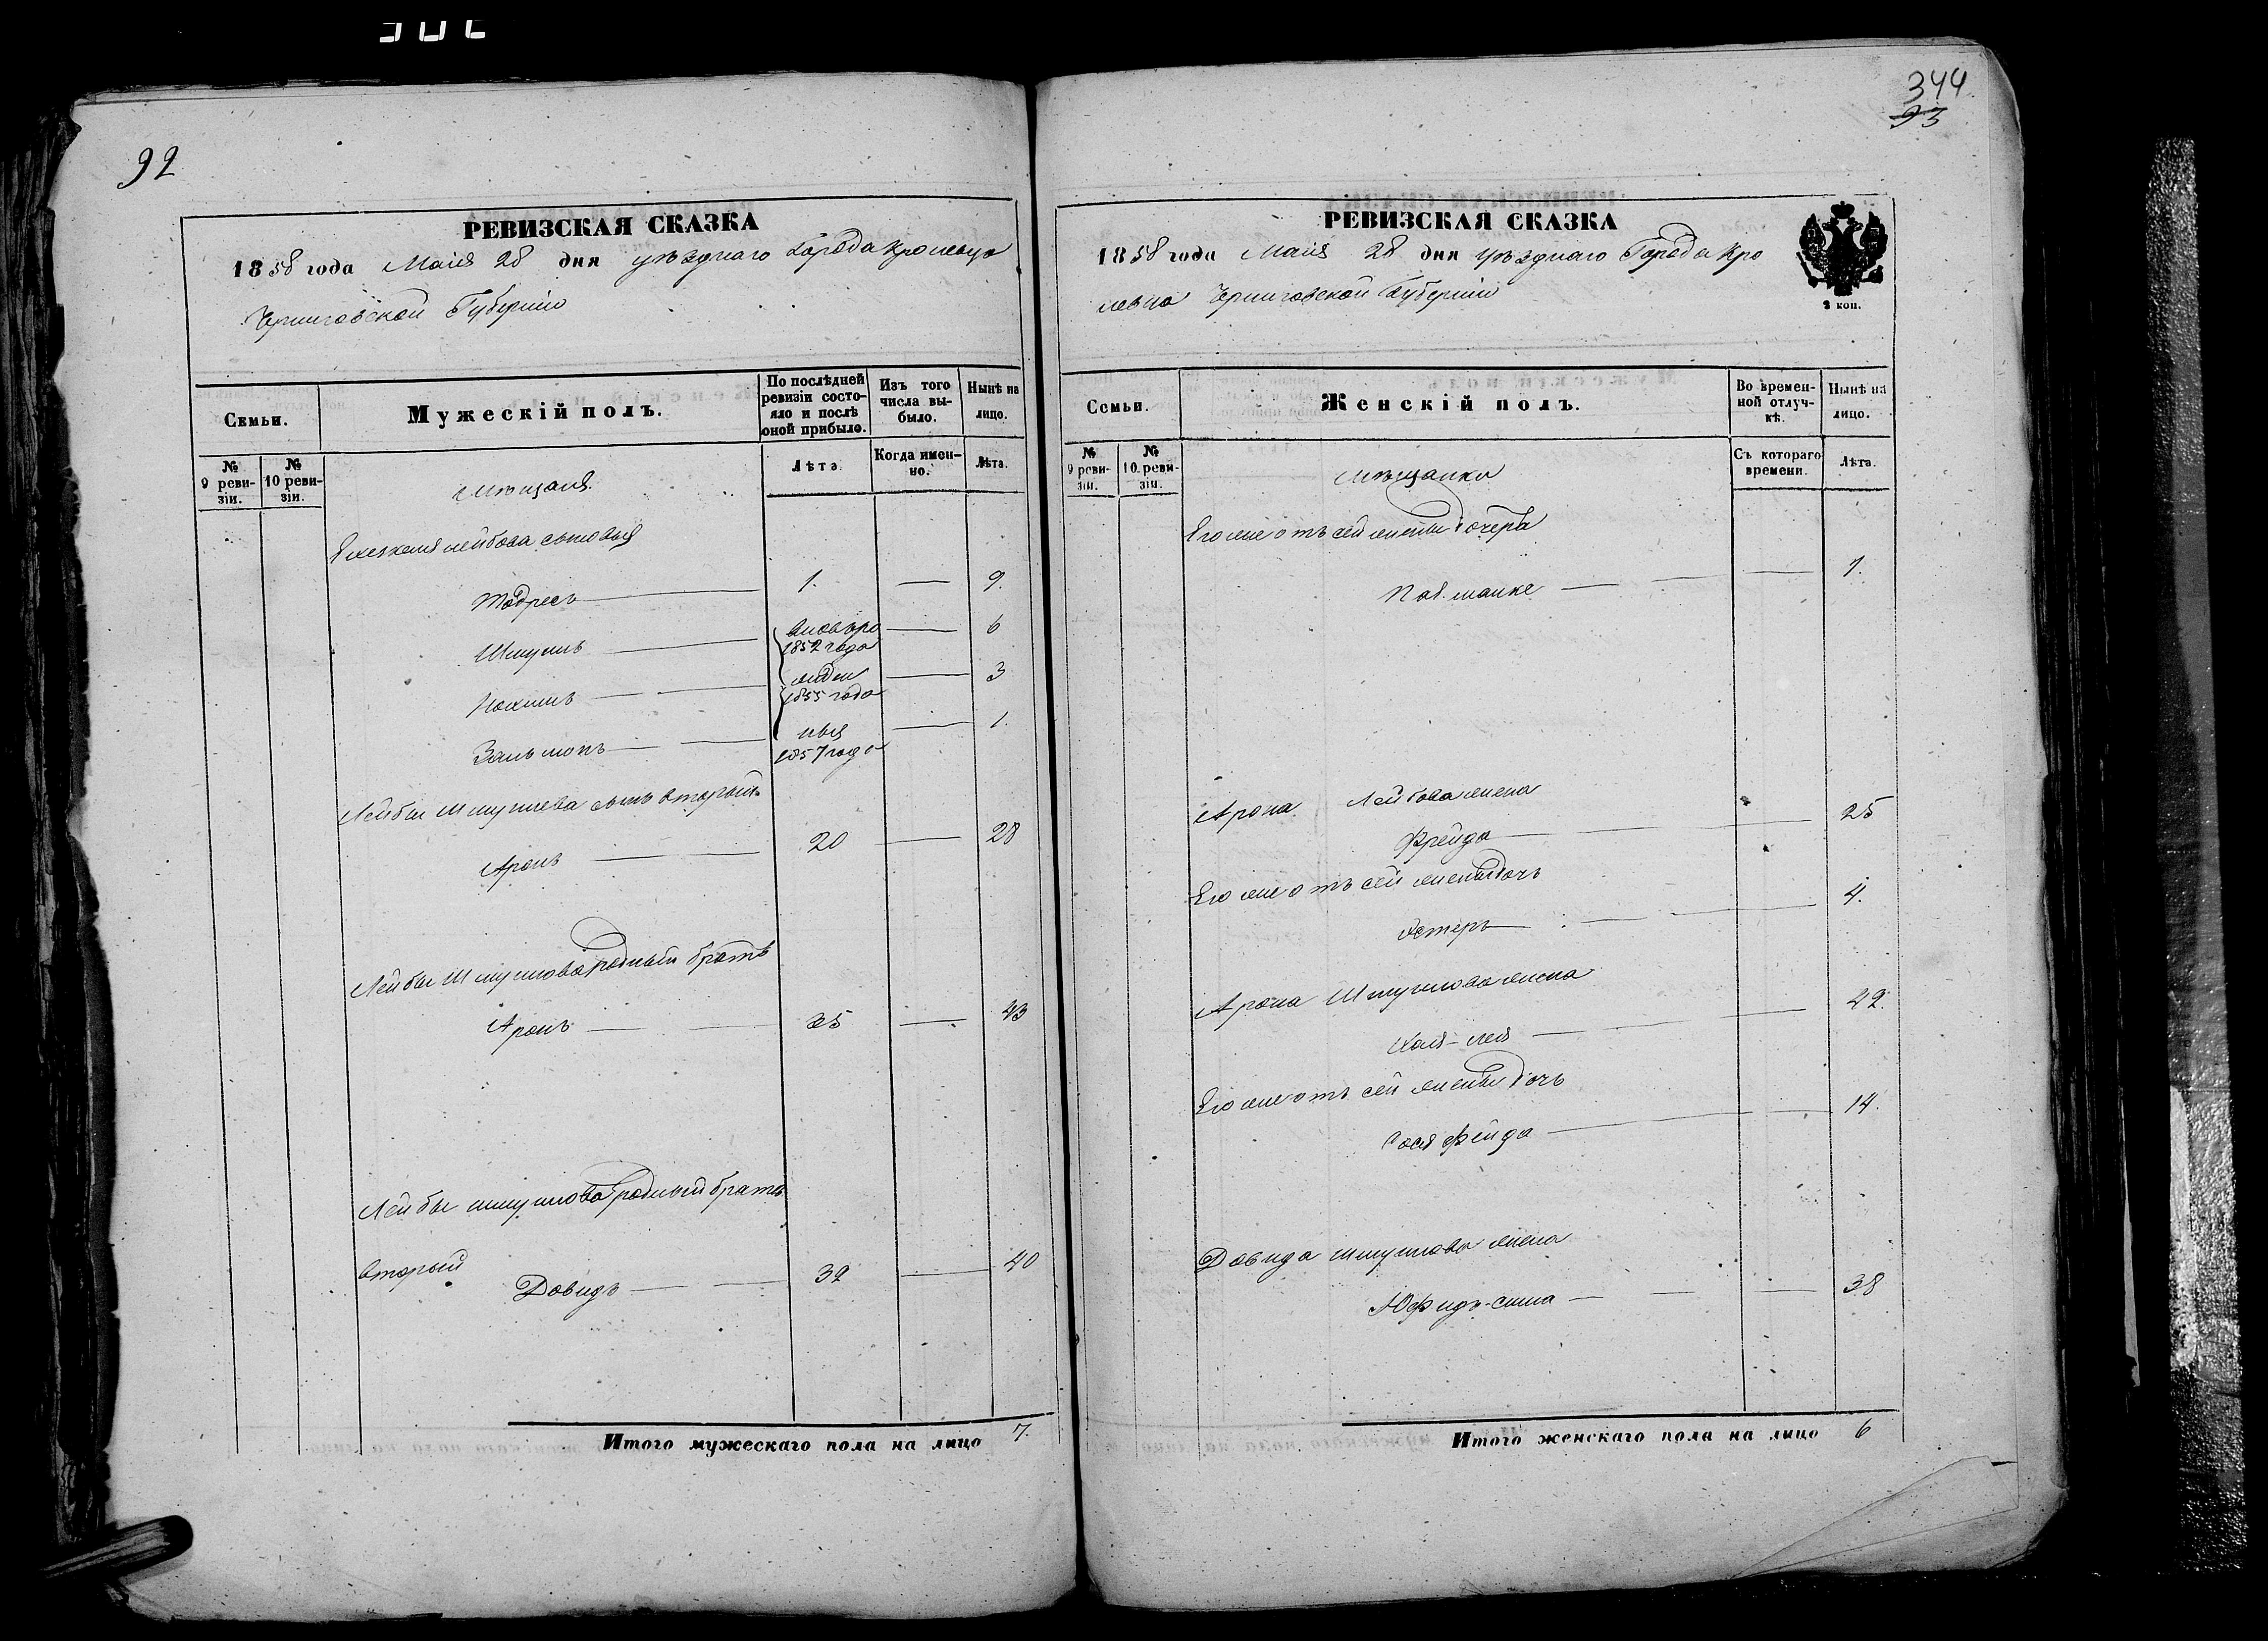 92
РЕВИЗСКАЯ СКАЗКА
1858 года Маія 28 дня уѣзднаго Города Кролевца
Черниговской Губерніи
Семьи.
Мужескій полъ.
По послѣдней ревизіи состояло и послѣ оной прибыло.
Изъ того числа выбыло.
Нынѣ на лицо.
№ 9 ревизіи.
№ 10 ревизіи.
Лѣта.
Когда именно.
Лѣта.
мѣщаня.
лейбова сыновья
Тодресъ 1. 9.
Шмуль 1852 года 6
Нохимъ 1855 года 3
Зальмонъ 1857 года 1.
Лейбы Шмулева сынъ вторый
Аронъ 20 28
Лейбы Шмулова родный братъ
Аронъ 35 43
Лейбы шмулова родный братъ
вторый
Довидъ 32 40
Итого мужескаго пола на лицо 7.
344
93
РЕВИЗСКАЯ СКАЗКА
1858 года Маія 28 дня уѣзднаго Города Кро
левца Черниговской Губерніи
2 коп.
Семьи.
Женскій полъ.
Во временной отлучкѣ.
Нынѣ на лицо.
№ 9 ревизіи.
№ 10. ревизіи.
Съ котораго времени.
Лѣта.
мѣщанки
Его же отъ сей жены дочерь
1.
Арона Лейбова жена
Фрейда 25
Его же отъ сей жены дочь
Естеръ 4.
Арона Шмулова жена
Хая-лея 42.
Его же отъ сей жены дочь
фейда 14.
Довида шмулова жена
38
Итого женскаго пола на лицо 6